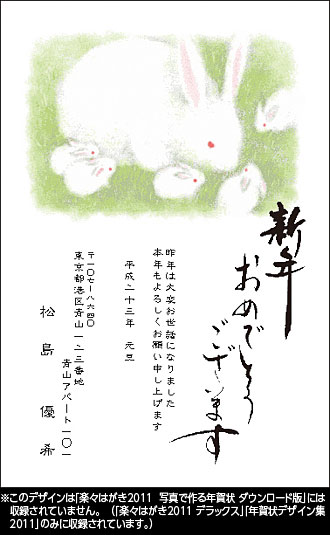 新年
おめでとう
ございます
昨年は大変お世話になりました
本年もよろしくお願い申し上げます
平成二十三年　元旦
〒一〇七-八六四〇
東京都港区青山一-二-三番地
青山アパート一〇一
松島　優希
※このデザインは「楽々はがき2011　写真で作る年賀状 ダウンロード版」には
収録されていません。（「楽々はがき2011 デラックス」「年賀状デザイン集
2011」のみに収録されています。）